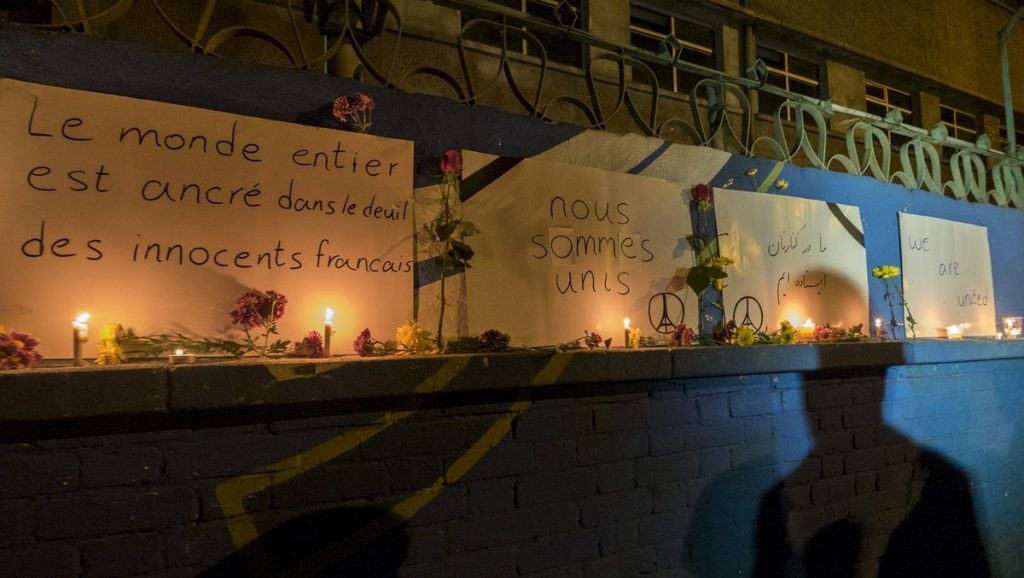 Le monde entier
est ancré dans le deuil
des innocents francais
nous
sommes
unis
ما در کنارتان
ایستاده ایم
we
are
united